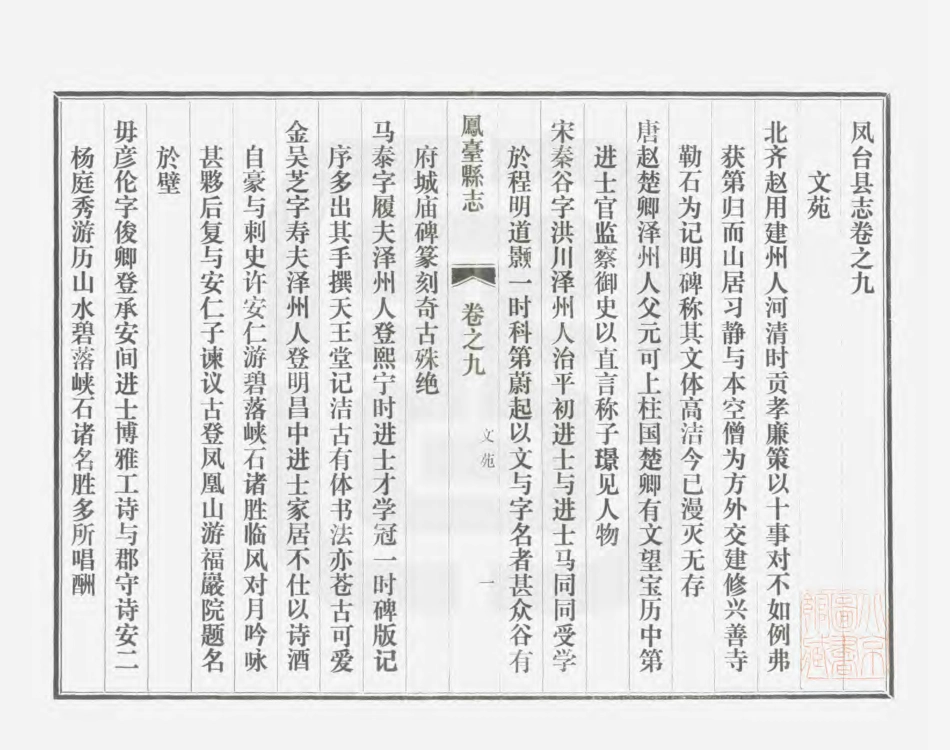 凤台县志卷之九
文苑
北齐赵用建州人河清时贡孝廉策以十事对不如例弗
获第归而山居习静与本空僧为方外交建修兴善寺
勒石为记明碑称其文体高洁今已漫灭无存
唐赵楚卿泽州人父元可上柱国楚卿有文望宝历中第
进士官监察御史以直言称子璟见人物
宋秦谷字洪川泽州人治平初进士与进士马同同受学
於程明道颢一时科第蔚起以文与字名者甚众谷有
鳳臺縣志
卷之九
文苑
一
府城庙碑篆刻奇古殊绝
马泰字履夫泽州人登熙宁时进士才学冠一时碑版记
序多出其手撰天王堂记洁古有体书法亦苍古可爱
金吴芝字寿夫泽州人登明昌中进士家居不仕以诗酒
自豪与刺史许安仁游碧落峡石诸胜临风对月吟咏
甚夥后复与安仁子谏议古登凤凰山游福巖院题名
於壁
毋彦伦字俊卿登承安间进士博雅工诗与郡守诗安二
杨庭秀游历山水碧落峡石诸名胜多所唱酬